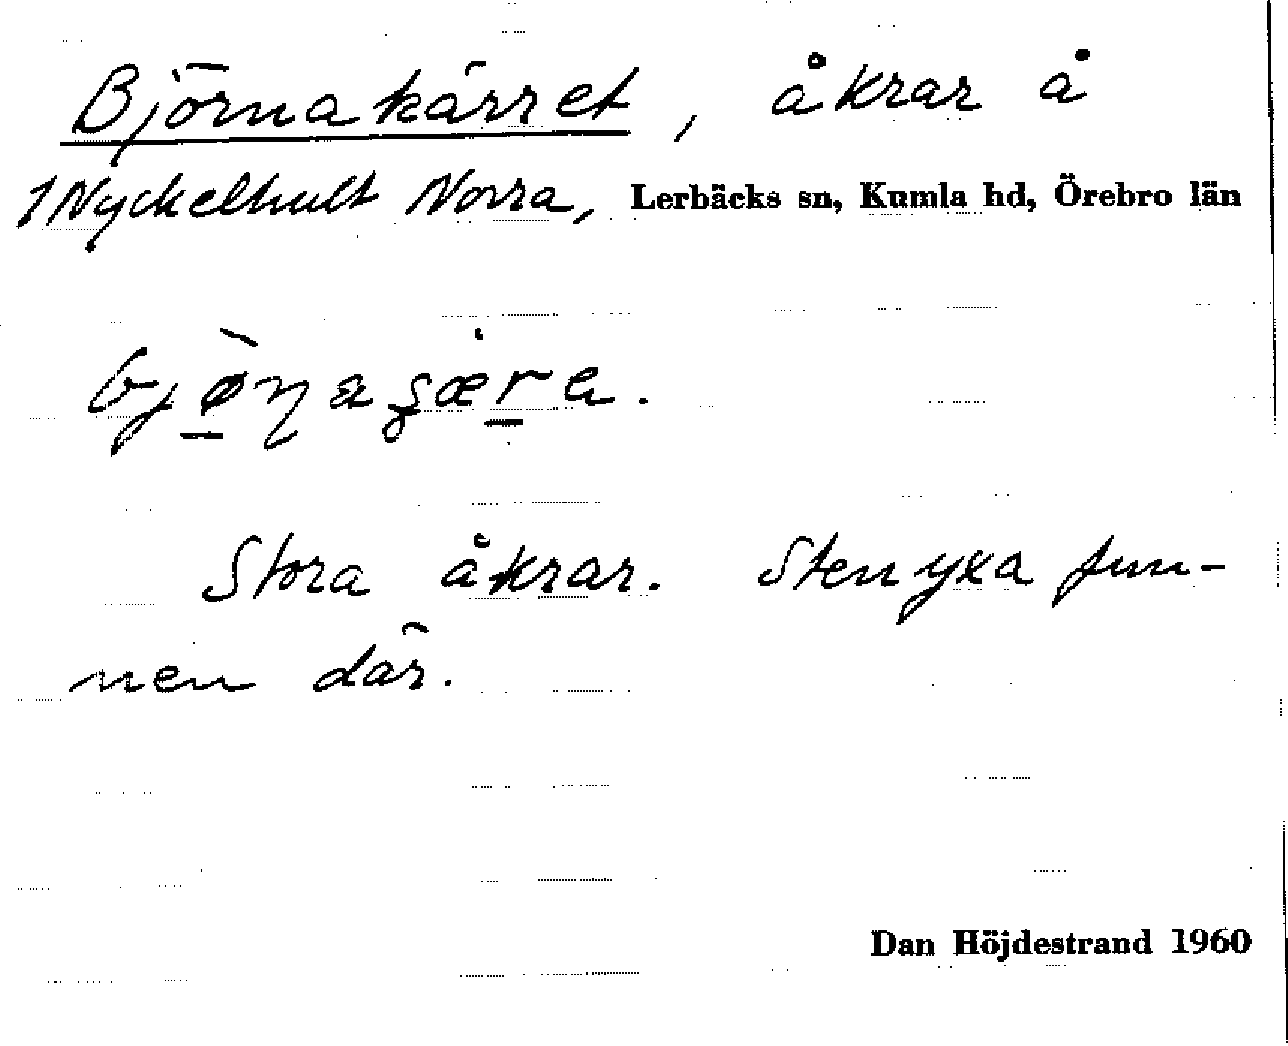 Björnakärret, åkrar å
1 Nyckelhult Norra, Lerbäcks sn, Kumla hd, Örebro län
Stora åkrar. Stenyxa fun-
nen där.
Dan Höjdestrand 1960